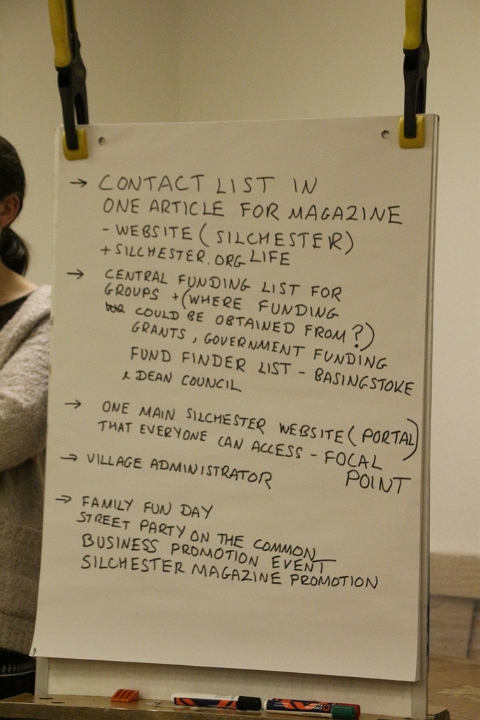 → CONTACT LIST IN
ONE ARTICLE FOR MAGAZINE
- WEBSITE (SILCHESTER)
+ SILCHESTER.ORG LIFE
→ CENTRAL FUNDING LIST FOR
GROUPS + (WHERE FUNDING
COULD BE OBTAINED FROM?)
GRANTS, GOVERNMENT FUNDING
FUND FINDER LIST - BASINGSTOKE
& DEAN COUNCIL
→ ONE MAIN SILCHESTER WEBSITE (PORTAL)
THAT EVERYONE CAN ACCESS - FOCAL
POINT
→ VILLAGE ADMINISTRATOR
→ FAMILY FUN DAY
STREET PARTY ON THE COMMON
BUSINESS PROMOTION EVENT
SILCHESTER MAGAZINE PROMOTION